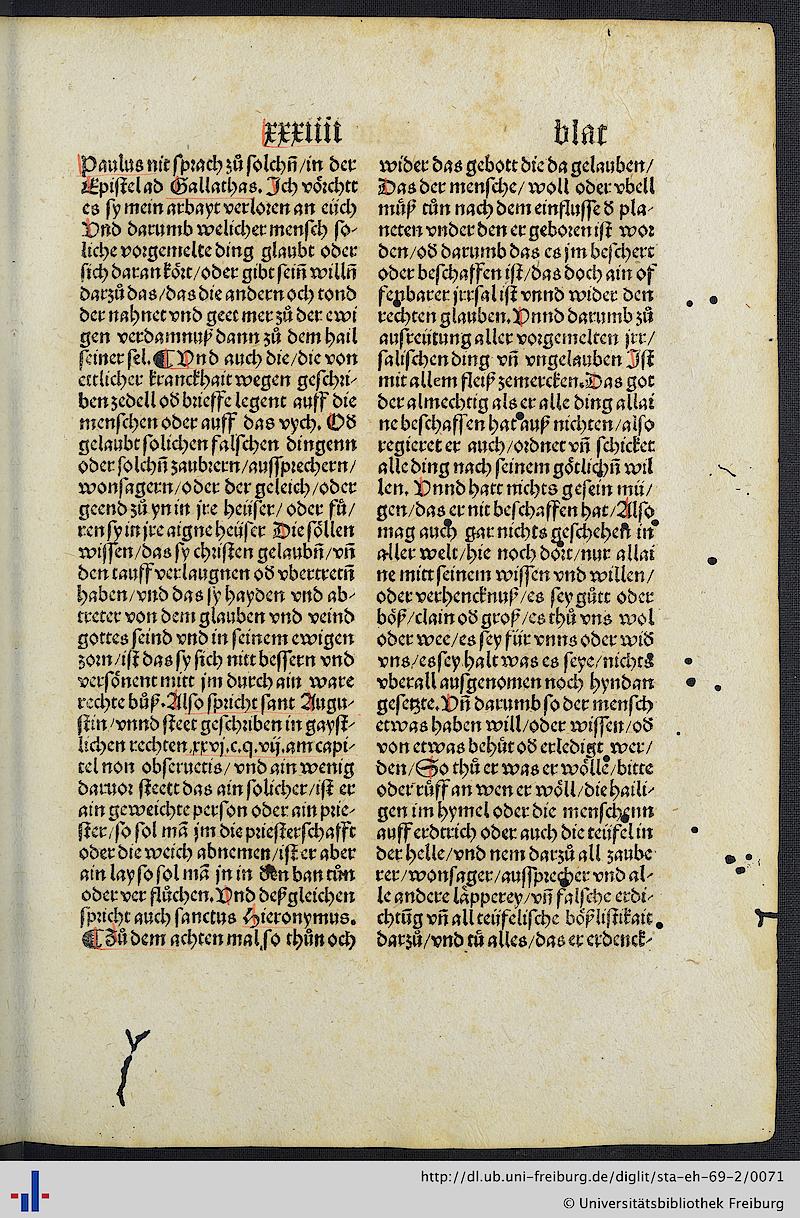 xxxiiii blat
Paulus nit sprach zů solchñ/in der
Epistel ad Gallathas. Ich vörchtt
es sy mein arbayt verloren an eüch
Vnd darumb welicher mensch so-
liche vorgemelte ding glaubt oder
sich daran kört/oder gibt seiñ willñ
darzů das/das die andern och tond
der nahnet vnd geet mer zů der ewi
gen verdamnuß dann zů dem hail
seiner sel. ¶ Vnd auch die/die von
ettlicher kranckhait wegen geschri-
ben zedell od brieffe legent auff die
menschen oder auff das vych. Od
gelaubt solichen falschen dingenn
oder solchñ zaubrern/aussprechern/
wonsagern/oder der geleich/oder
geend zů yn in jre heüser/oder fü/
ren sy in jre aigne heüser Die söllen
wissen/das sy christen gelaubñ/vñ
den tauff verlaugnen od vbertretñ
haben/vnd das sy hayden vnd ab-
treter von dem glauben vnd veind
gottes seind vnd in seinem ewigen
zorn/ist das sy sich nitt bessern vnd
versönent mitt jm durch ain ware
rechte bůß. Also spricht sant Augu-
stin/vnnd steet geschriben in gayst-
lichen rechten.xxvj.c.q.vij.am capi-
tel non obseruetis/vnd ain wenig
daruor steett das ain solicher/ist er
ain geweichte person oder ain prie-
ster/so sol mā jm die priesterschafft
oder die weich abnemen/ist er aber
ain lay so sol mā jn in den ban tůn
oder ver flůchen. Vnd deßgleichen
spricht auch sanctus Hieronymus.
¶ Zů dem achten mal so thůn och
wider das gebott die da gelauben/
Das der mensche/woll oder vbell
můß tůn nach dem einflusse d pla-
neten vnder den er geboren ist wor
den/od darumb das es jm beschert
oder beschaffen ist/das doch ain of
fenbarer jrrsal ist vnnd wider den
rechten glauben. Vnnd darumb zů
ausreütung aller vorgemelten jrr/
salischen ding vñ vngelauben Ist
mit allem fleiß zemercken. Das got
der almechtig als er alle ding allai
ne beschaffen hat auß nichten/also
regieret er auch/ordnet vñ schicket
alle ding nach seinem götlichñ wil
len. Vnnd hatt nichts gesein mü/
gen/das er nit beschaffen hat/Also
mag auch gar nichts geschehen in
aller welt/hie noch dört/nur allai
ne mitt seinem wissen vnd willen/
oder verhencknuß/es sey gůtt oder
böß/clain od groß/es thů vns wol
oder wee/es sey für vnns oder wid
vns/es sey halt was es seye/nichts
vberall ausgenomen noch hyndan
gesetzte. Vñ darumb so der mensch
etwas haben will/oder wissen/od
von etwas behůt od erledigt wer/
den/So thů er was er wölle/bitte
oder růff an wen er wöll/die haili-
gen im hymel oder die menschenn
auff erdtrich oder auch die teüfel in
der helle/vnd nem darzů all zaube
rer/wonsager/aussprecher vnd al-
le andere läpperey/vñ falsche erdi-
chtūg vñ all teüfelische bößlistikait
darzů/vnd tů alles/das er erdenck-
http://dl.ub.uni-freiburg.de/diglit/sta-eh-69-2/0071
© Universitätsbibliothek Freiburg